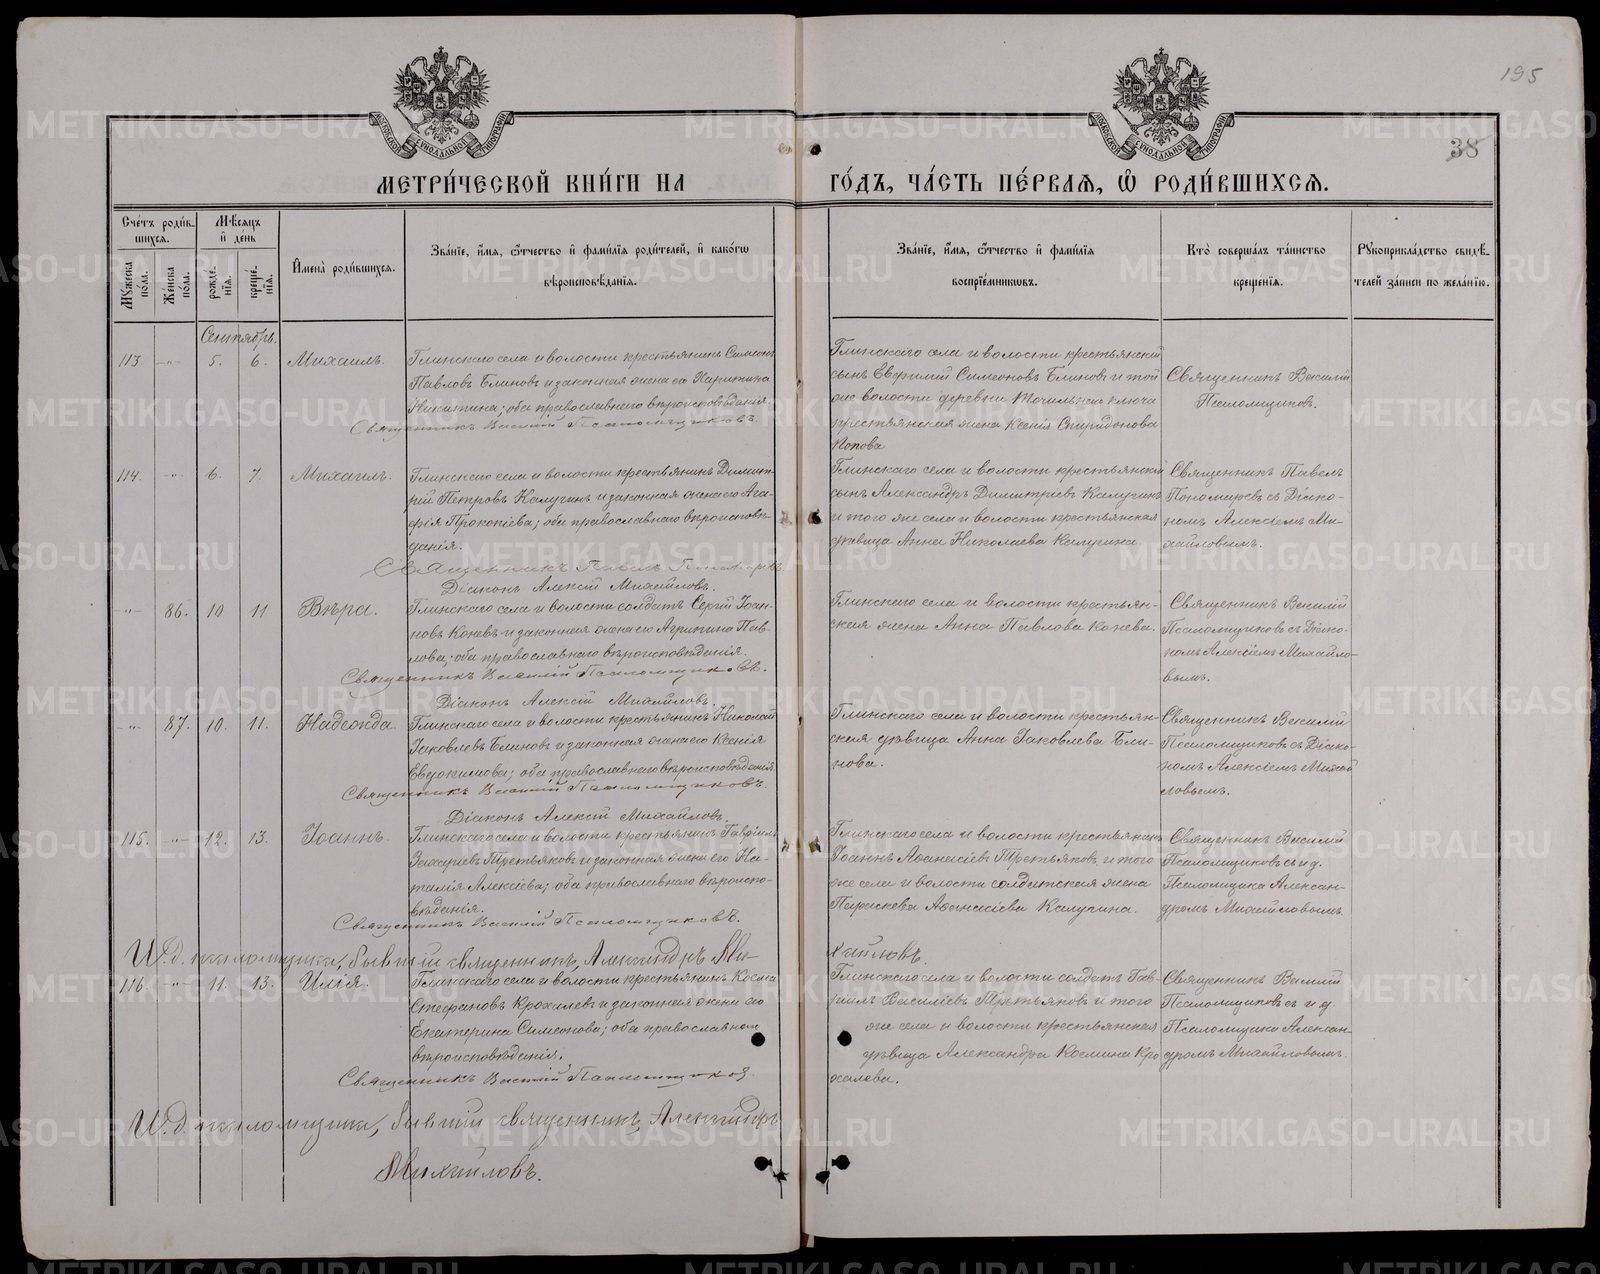 195
38
МОСКОВСКОЙ СѴНОДАЛЬНОЙ ТИПОГРАФІИ
МОСКОВСКОЙ СѴНОДАЛЬНОЙ ТИПОГРАФІИ
МЕТРИ́ЧЕСКОЙ КНИ́ГИ НА ГО́ДЪ, ЧА́СТЬ ПЕ́РВАѦ, Ѡ҆ РОДИ́ВШИХСѦ.
Сче́тъ роди́в-
шихсѧ.
Мѣ́сѧцъ
и҆ де́нь
Му́жеска по́ла.
Же́нска по́ла.
рожде́нїѧ.
креще́нїѧ.
И҆мена̀ роди́вшихсѧ.
Зва́нїе, и҆́мѧ, ѻ҆́тчество и҆ фами́лїѧ роди́телей, и҆ како́гѡ
вѣроисповѣ́данїѧ.
Зва́нїе, и҆́мѧ, ѻ҆́тчество и҆ фами́лїѧ
воспрїе́мникѡвъ.
Кто̀ соверша́лъ та́инство
креще́нїѧ.
Рꙋкоприкла́дство свидѣ́-
телей за́писи по жела́нїю.
Сентябрь.
113. -"- 5. 6. Михаилъ.
Глинскаго села и волости крестьянинъ Симеонъ
Павловъ Блиновъ и законная жена его Харитина
Никитина; оба православнаго вѣроисповѣданія
Священникъ Василій Псаломщиковъ.
Глинскаго села и волости крестьянскій
сынъ Евфимій Симеоновъ Блиновъ и той
же волости деревни Точильнаго ключа
крестьянская жена Ксенія Спиридонова
Попова
Священникъ Василій
Псаломщиковъ.
114. -"- 6. 7. Михаилъ.
Глинскаго села и волости крестьянинъ Димит-
рій Петровъ Калугинъ и законная жена его Ага-
фія Прокопіева; оба православнаго вѣроисповѣ-
данія.
Священникъ Павелъ Пономаревъ
Діаконъ Алексій Михайловъ.
Глинскаго села и волости крестьянскій
сынъ Александръ Димитріевъ Калугинъ
и того же села и волости крестьянская
дѣвица Анна Николаева Калугина
Священникъ Павелъ
Пономаревъ съ Діако-
номъ Алексіемъ Ми-
хайловымъ.
-"- 86. 10 11 Вѣра.
Глинскаго села и волости солдатъ Сергій Іоан-
новъ Коневъ и законная жена его Агрипина Пав-
лова; оба православнаго вѣроисповѣданія.
Священникъ Василій Псаломщиковъ.
Діаконъ Алексій Михайловъ.
Глинскаго села и волости крестьян-
ская жена Анна Павлова Конева.
Священникъ Василій
Псаломщиковъ съ Діако-
номъ Алексіемъ Михайло-
вымъ.
-"- 87. 10. 11. Надежда.
Глинскаго села и волости крестьянинъ Николай
Іаковлевъ Блиновъ и законная жена его Ксенія
Евдокимова; оба православнаго вѣроисповѣданія
Священникъ Василій Псаломщиковъ.
Діаконъ Алексій Михайловъ.
Глинскаго села и волости крестьян-
ская дѣвица Анна Іаковлева Бли-
нова.
Священникъ Василій
Псаломщиковъ съ Діако-
номъ Алексіемъ Михай
ловымъ.
115. -"- 12. 13. Іоаннъ.
Глинскаго села и волости крестьянинъ Гавріилъ
Захаріевъ Третьяковъ и законная жена его На-
талія Алексіева; оба православнаго вѣроиспо-
вѣданія.
Священникъ Василій Псаломщиковъ.
И. д. псаломщика, бывшій священникъ, Александръ Ми-
хайловъ.
Глинскаго села и волости крестьянинъ
Іоаннъ Аѳанасіевъ Третьяковъ и того
же села и волости солдатская жена
Параскева Аѳанасіева Калугина.
Священникъ Василій
Псаломщиковъ съ и д.
Псаломщика Алексан-
дромъ Михайловымъ.
116. -"- 11. 13. Илія.
Глинскаго села и волости крестьянинъ Косма
Стефановъ Крохалевъ и законная жена его
Екатерина Симеонова; оба православнаго
вѣроисповѣданія.
Священникъ Василій Псаломщиковъ.
И. д. псаломщика, бывшій священникъ, Александръ
Михайловъ.
Глинскаго села и волости солдатъ Гав-
ріилъ Василіевъ Третьяковъ и того
же села и волости крестьянская
дѣвица Александра Космина Кро
халева.
Священникъ Василій
Псаломщиковъ съ и д.
Псаломщика Алексан-
дромъ Михайловымъ.
METRIKI.GASO-URAL.RU